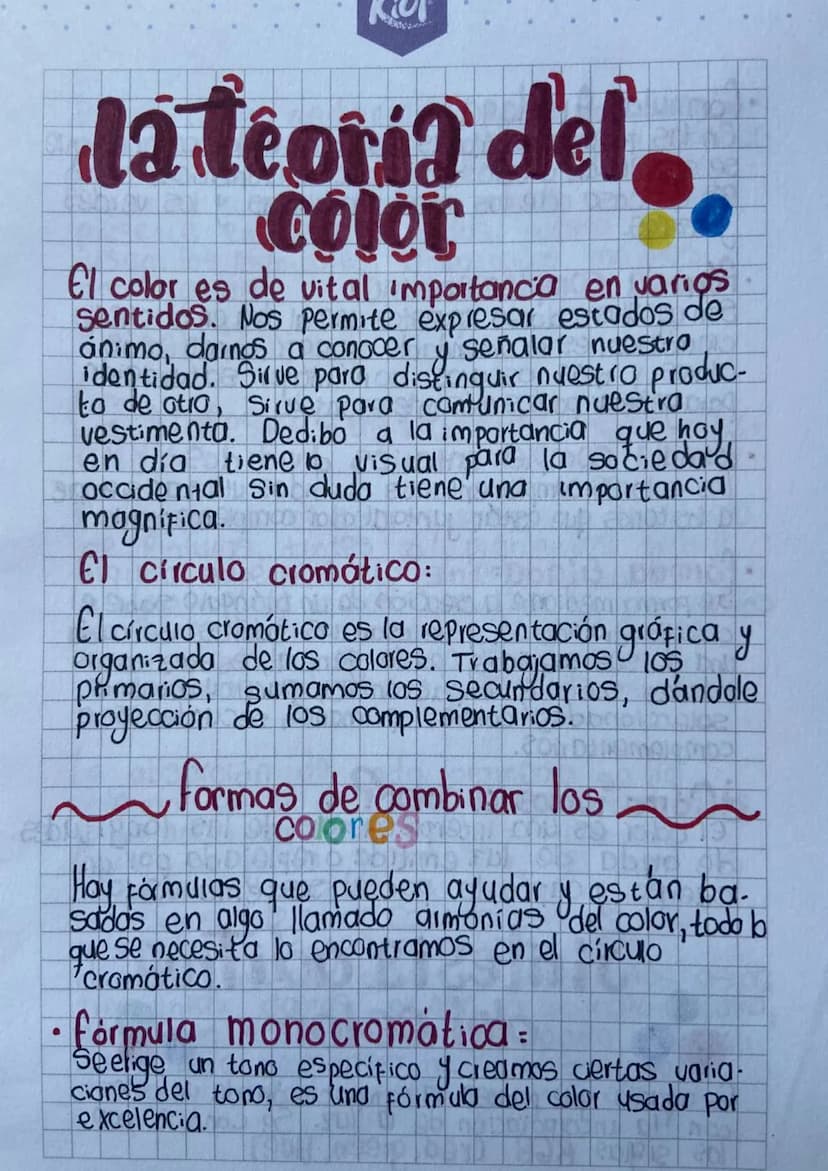 Kiut
la teoría del
color
El color es de vital importancia en varios
sentidos. Nos permite expresar estados de
ánimo, darnos a conocer y señalar nuestra
identidad. Sirve para distinguir nuestro produc-
to de otro, sirve para comunicar nuestra
vestimenta. Dedibo a la importancia que hoy
en día tiene lo visual para la sociedad
occidental sin duda tiene una importancia
magnífica.
El círculo cromático:
El círculo cromático es la representación gráfica y
organizada de los colores. Trabajamos los
primarios, sumamos los secundarios, dándole
proyección de los complementarios.
formas de combinar los
colores
Hay fórmulas que pueden ayudar y están ba-
sadas en algo llamado armonías del color, todo lo
que se necesita lo encontramos en el círculo
cromático.
• fórmula monocromática:
Se elige un tono específico y creamos ciertas varia-
ciones del tono, es una fórmula del color usada por
excelencia.